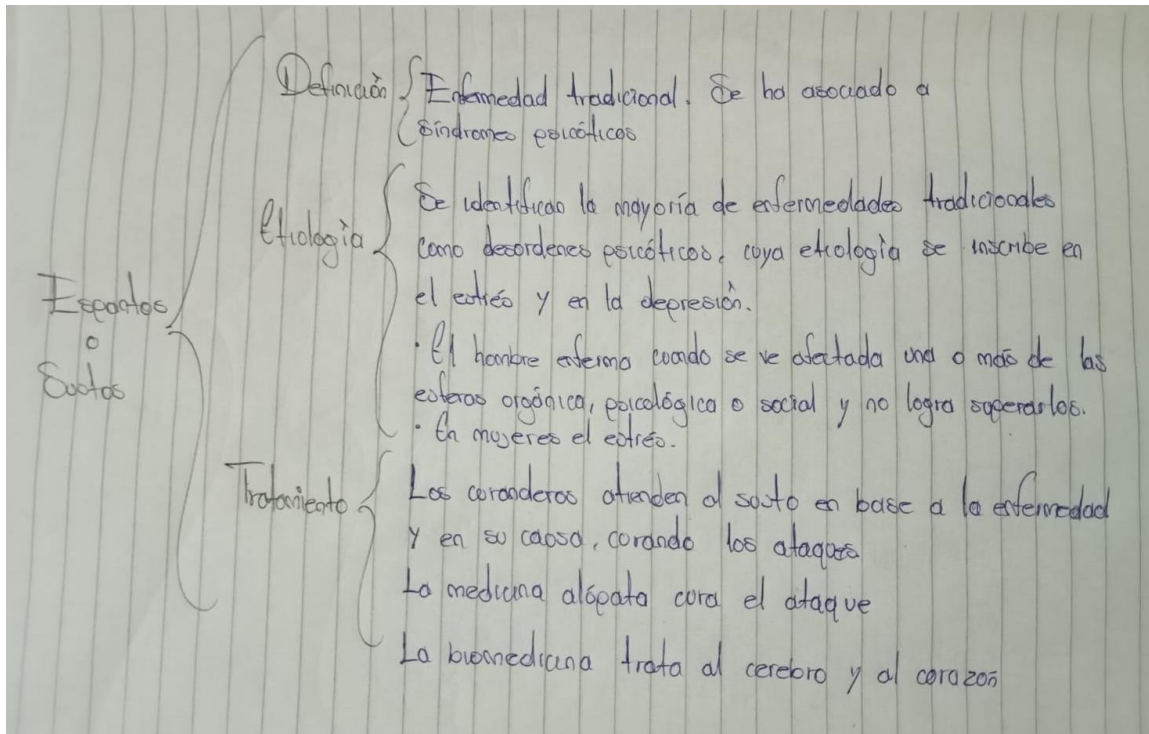 Espantos
o
Sustos
Definición
Enfermedad tradicional. Se ha asociado a
síndromes psicóticos
Etiología
Se identifican la mayoría de enfermedades tradicionales
como desordenes psicóticos, cuya etiología se inscribe en
el estrés y en la depresión.
· El hombre enferma cuando se ve afectada una o más de las
esferas orgánica, psicológica o social y no logra superarlos.
· En mujeres el estrés.
Tratamiento
Los curanderos atienden al susto en base a la enfermedad
y en su causa, curando los ataques
La medicina alópata cura el ataque
La biomedicina trata al cerebro y al corazón